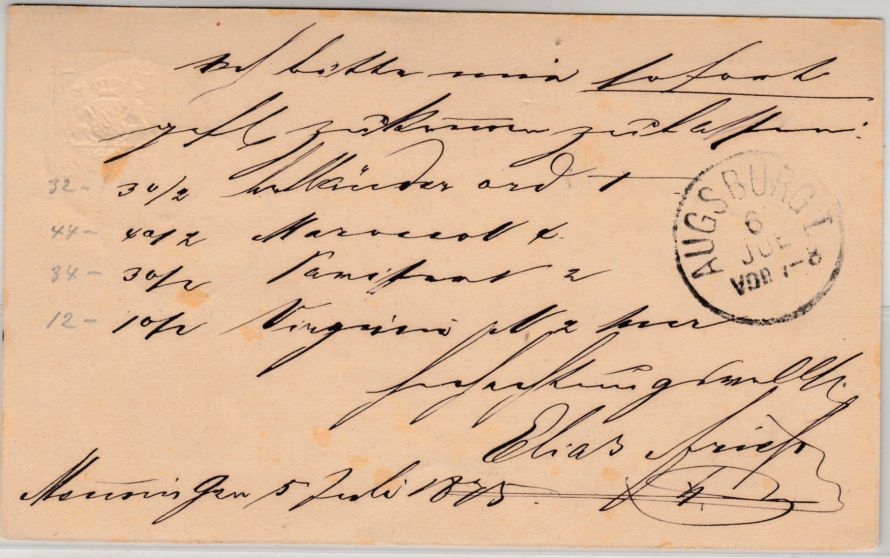 Ich bitte mir sofort
gefl. zukommen zu lassen:
32- 30/2 ord 1
44- 40/2 Marocco
34- 30/2 2
12- 10/2 Virginia 2
hochachtungsvollst
Elias
Memmingen 5 Juli 1875.
AUGSBURG I
6
JUL
VOR 7-8